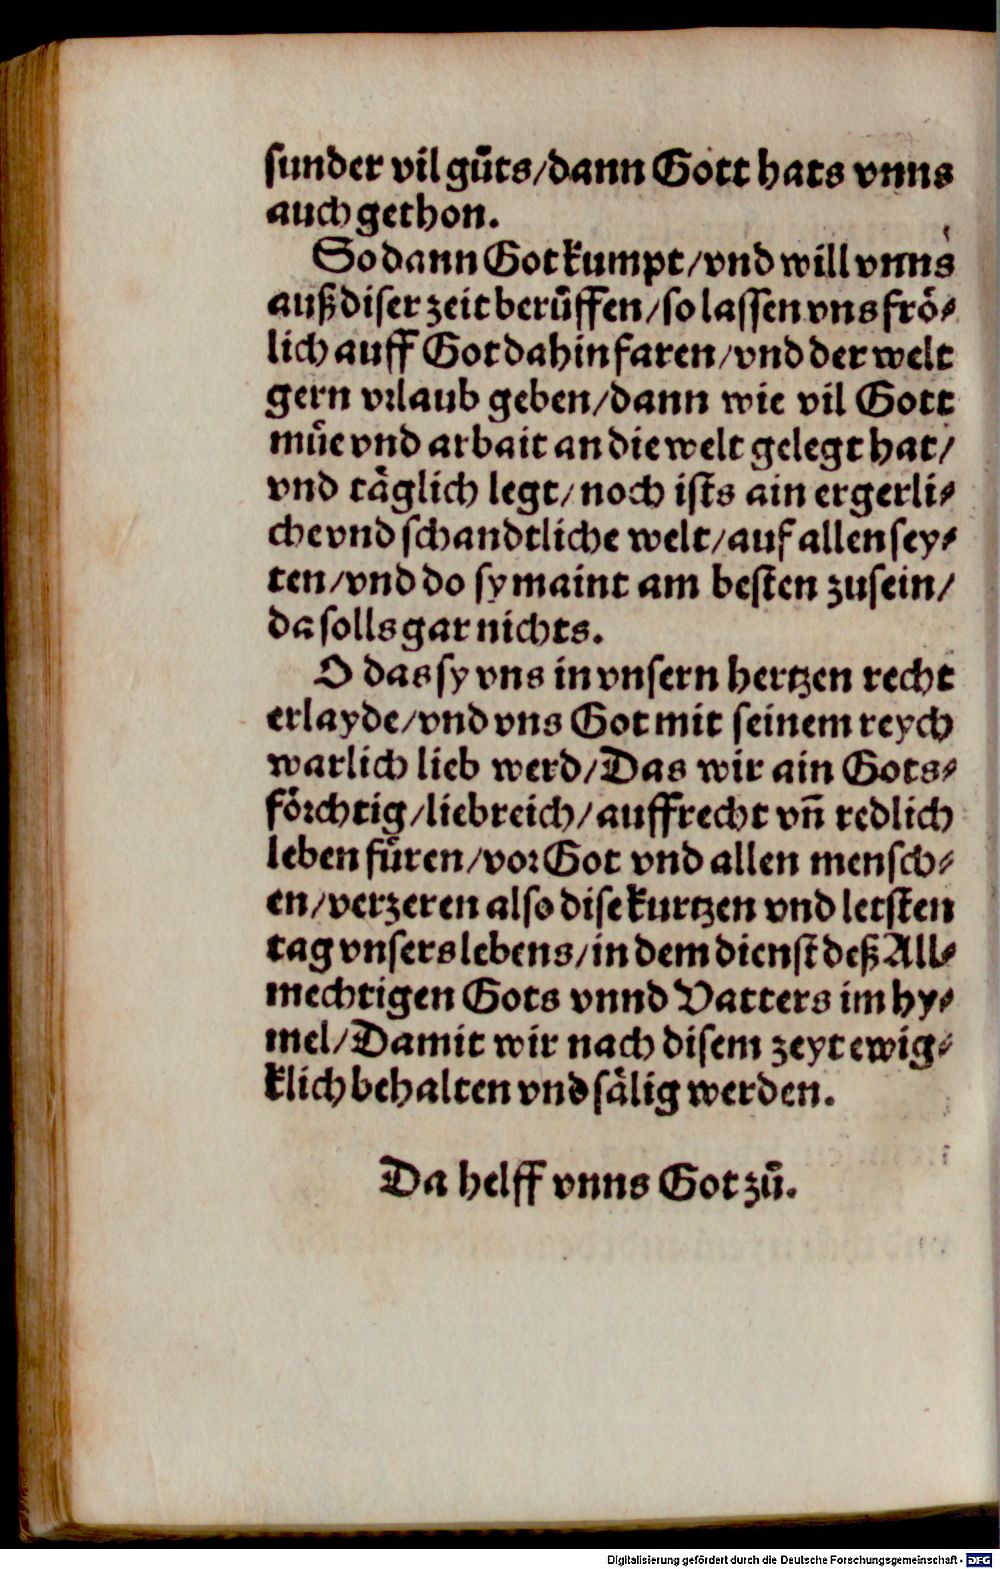 sunder vil gůts/dann Gott hats vnns
auch gethon.
So dann Got kumpt/vnd will vnns
auß diser zeit berůffen/so lassen vns frö⸗
lich auff Got dahin faren/vnd der welt
gern vꝛlaub geben/dann wie vil Gott
müe vnd arbait an die welt gelegt hat/
vnd täglich legt/noch ists ain ergerli⸗
che vnd schandtliche welt/auf allen sey⸗
ten/vnd do sy maint am besten zusein/
da solls gar nichts.
O das sy vns in vnsern hertzen recht
erlayde/vnd vns Got mit seinem reych
warlich lieb werd/Das wir ain Gots⸗
föꝛchtig/liebreich/auffrecht vñ redlich
leben füren/voꝛ Got vnd allen mensch⸗
en/verzeren also dise kurtzen vnd letsten
tag vnsers lebens/in dem dienst deß All⸗
mechtigen Gots vnnd Vatters im hy⸗
mel/Damit wir nach disem zeyt ewig⸗
klich behalten vnd sälig werden.
Da helff vnns Got zů.
Digitalisierung gefördert durch die Deutsche Forschungsgemeinschaft - DFG